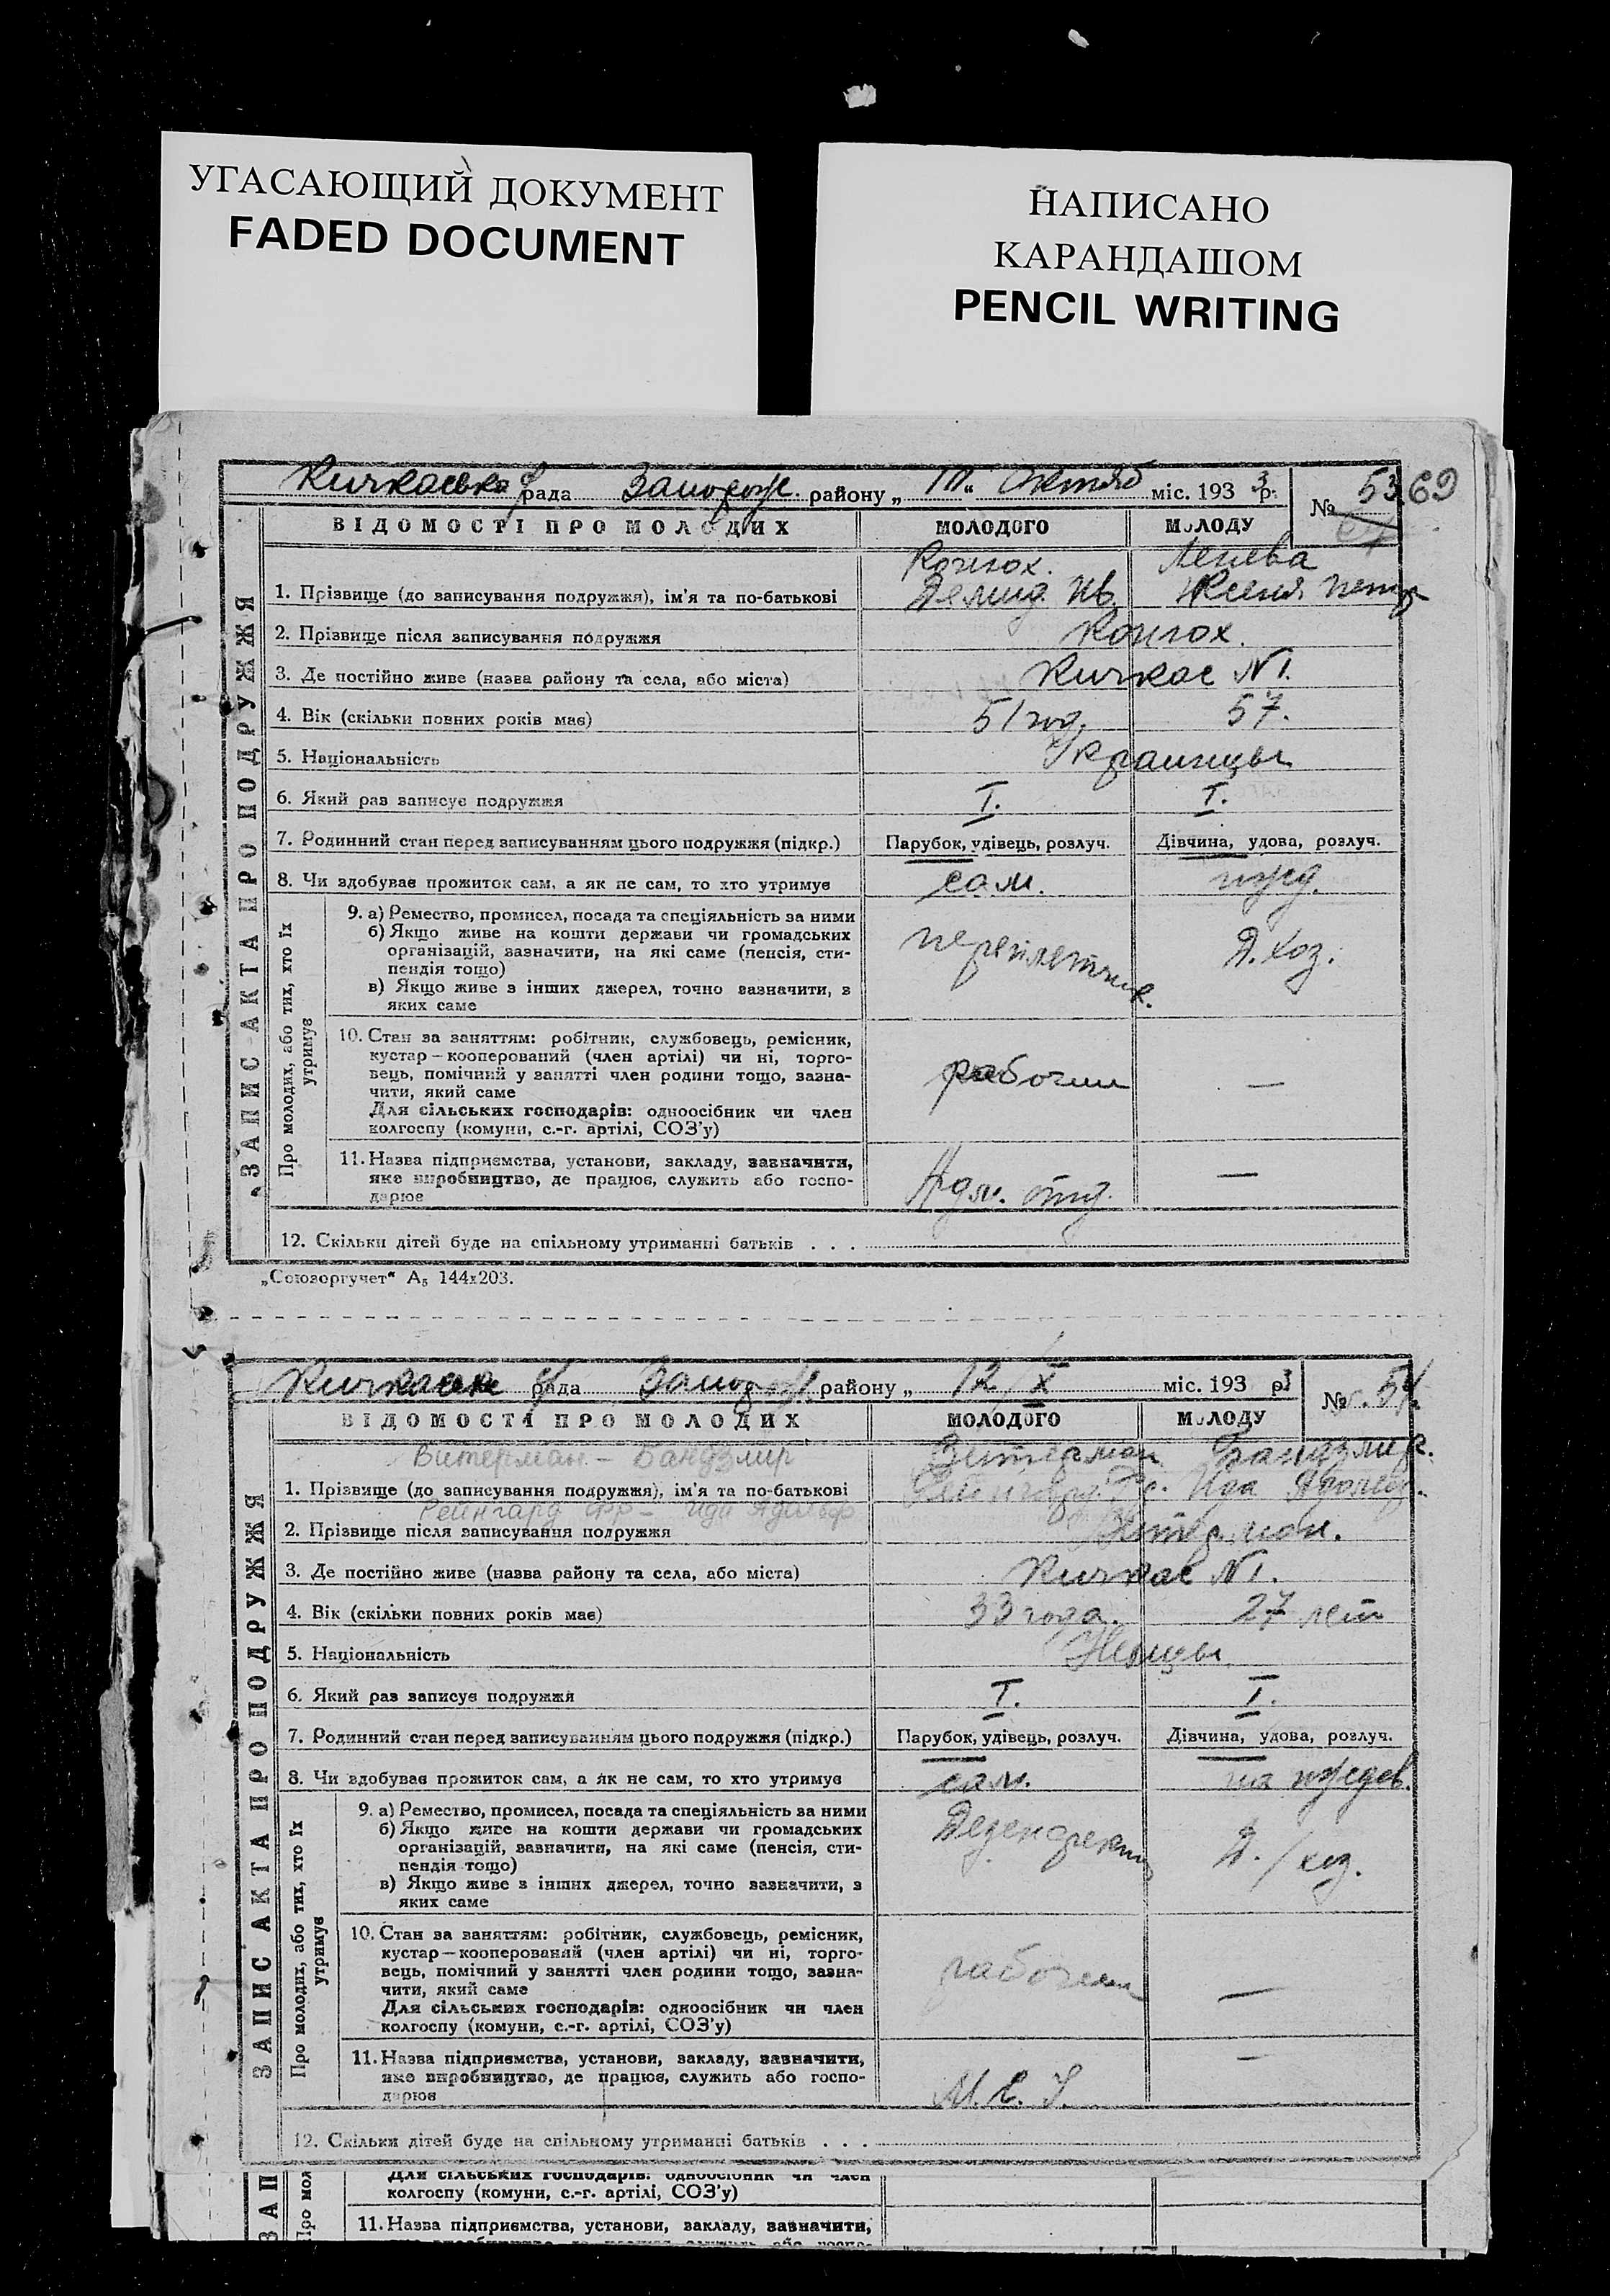 УГАСАЮЩИЙ ДОКУМЕНТ
FADED DOCUMENT
НАПИСАНО
КАРАНДАШОМ
PENCIL WRITING
Кичкаська рада Запорож. району „ " Октяб міс. 193 3 р. № 53 69
ВІДОМОСТІ ПРО МОЛОДИХ МОЛОДОГО МОЛОДУ
ЗАПИС АКТА ПРО ПОДРУЖЖЯ
1. Прізвище (до записування подружжя), ім'я та по-батькові Демид Ив. Ксения Петр
2. Прізвище після записування подружжя
3. Де постійно живе (назва району та села, або міста) Кичкас N 1.
4. Вік (скільки повних років має) 51 год. 57.
5. Національність Украинцы
6. Який раз записує подружжя I. I.
7. Родинний стан перед записуванням цього подружжя (підкр.) Парубок, удівець, розлуч. Дівчина, удова, розлуч.
8. Чи здобуває прожиток сам, а як не сам, то хто утримує сам. ижд.
Про молодих, або тих, хто їх утримує
9. а) Ремество, промисел, посада та спеціяльність за ними
б) Якщо живе на кошти держави чи громадських
організацій, зазначити, на які саме (пенсія, сти-
пендія тощо) переплетчик. Д. хоз.
в) Якщо живе з інших джерел, точно зазначити, з
яких саме
10. Стан за заняттям: робітник, службовець, ремісник,
кустар—кооперований (член артілі) чи ні, торго-
вець, помічний у занятті член родини тощо, зазна- рабочий —
чити, який саме
Для сільських господарів: одноосібник чи член
колгоспу (комуни, с.-г. артілі, СОЗ'у)
11. Назва підприємства, установи, закладу, зазначити,
яке виробництво, де працює, служить або госпо- —
дарює отд.
12. Скільки дітей буде на спільному утриманні батьків . . .
„Союзоргучет" А5 144х203.
Кичкаська рада Запорож. району „ 12/X міс. 193 3 р. № 54.
ВІДОМОСТІ ПРО МОЛОДИХ МОЛОДОГО МОЛОДУ
ЗАПИС АКТА ПРО ПОДРУЖЖЯ
Витерман – Бандзмир Витерман Бандзмир.
1. Прізвище (до записування подружжя), ім'я та по-батькові Рейнгард. Фр. Ида Адольф.
Рейнгард Фр – Ида Адольф
2. Прізвище після записування подружжя Витерман.
3. Де постійно живе (назва району та села, або міста) Кичкас N 1.
4. Вік (скільки повних років має) 33 года. 27 лет
5. Національність Немцы
6. Який раз записує подружжя I. I.
7. Родинний стан перед записуванням цього подружжя (підкр.) Парубок, удівець, розлуч. Дівчина, удова, розлуч.
8. Чи здобуває прожиток сам, а як не сам, то хто утримує сам. на иждев.
Про молодих, або тих, хто їх утримує
9. а) Ремество, промисел, посада та спеціяльність за ними
б) Якщо живе на кошти держави чи громадських
організацій, зазначити, на які саме (пенсія, сти- Д./хоз.
пендія тощо)
в) Якщо живе з інших джерел, точно зазначити, з
яких саме
10. Стан за заняттям: робітник, службовець, ремісник,
кустар—кооперований (член артілі) чи ні, торго-
вець, помічний у занятті член родини тощо, зазна- рабочий —
чити, який саме
Для сільських господарів: одноосібник чи член
колгоспу (комуни, с.-г. артілі, СОЗ'у)
11. Назва підприємства, установи, закладу, зазначити, —
яке виробництво, де працює, служить або госпо-
дарює
12. Скільки дітей буде на спільному утриманні батьків . . .
Для сільських господарів: одноосібник чи член
колгоспу (комуни, с.-г. артілі, СОЗ'у)
11. Назва підприємства, установи, закладу, зазначити,